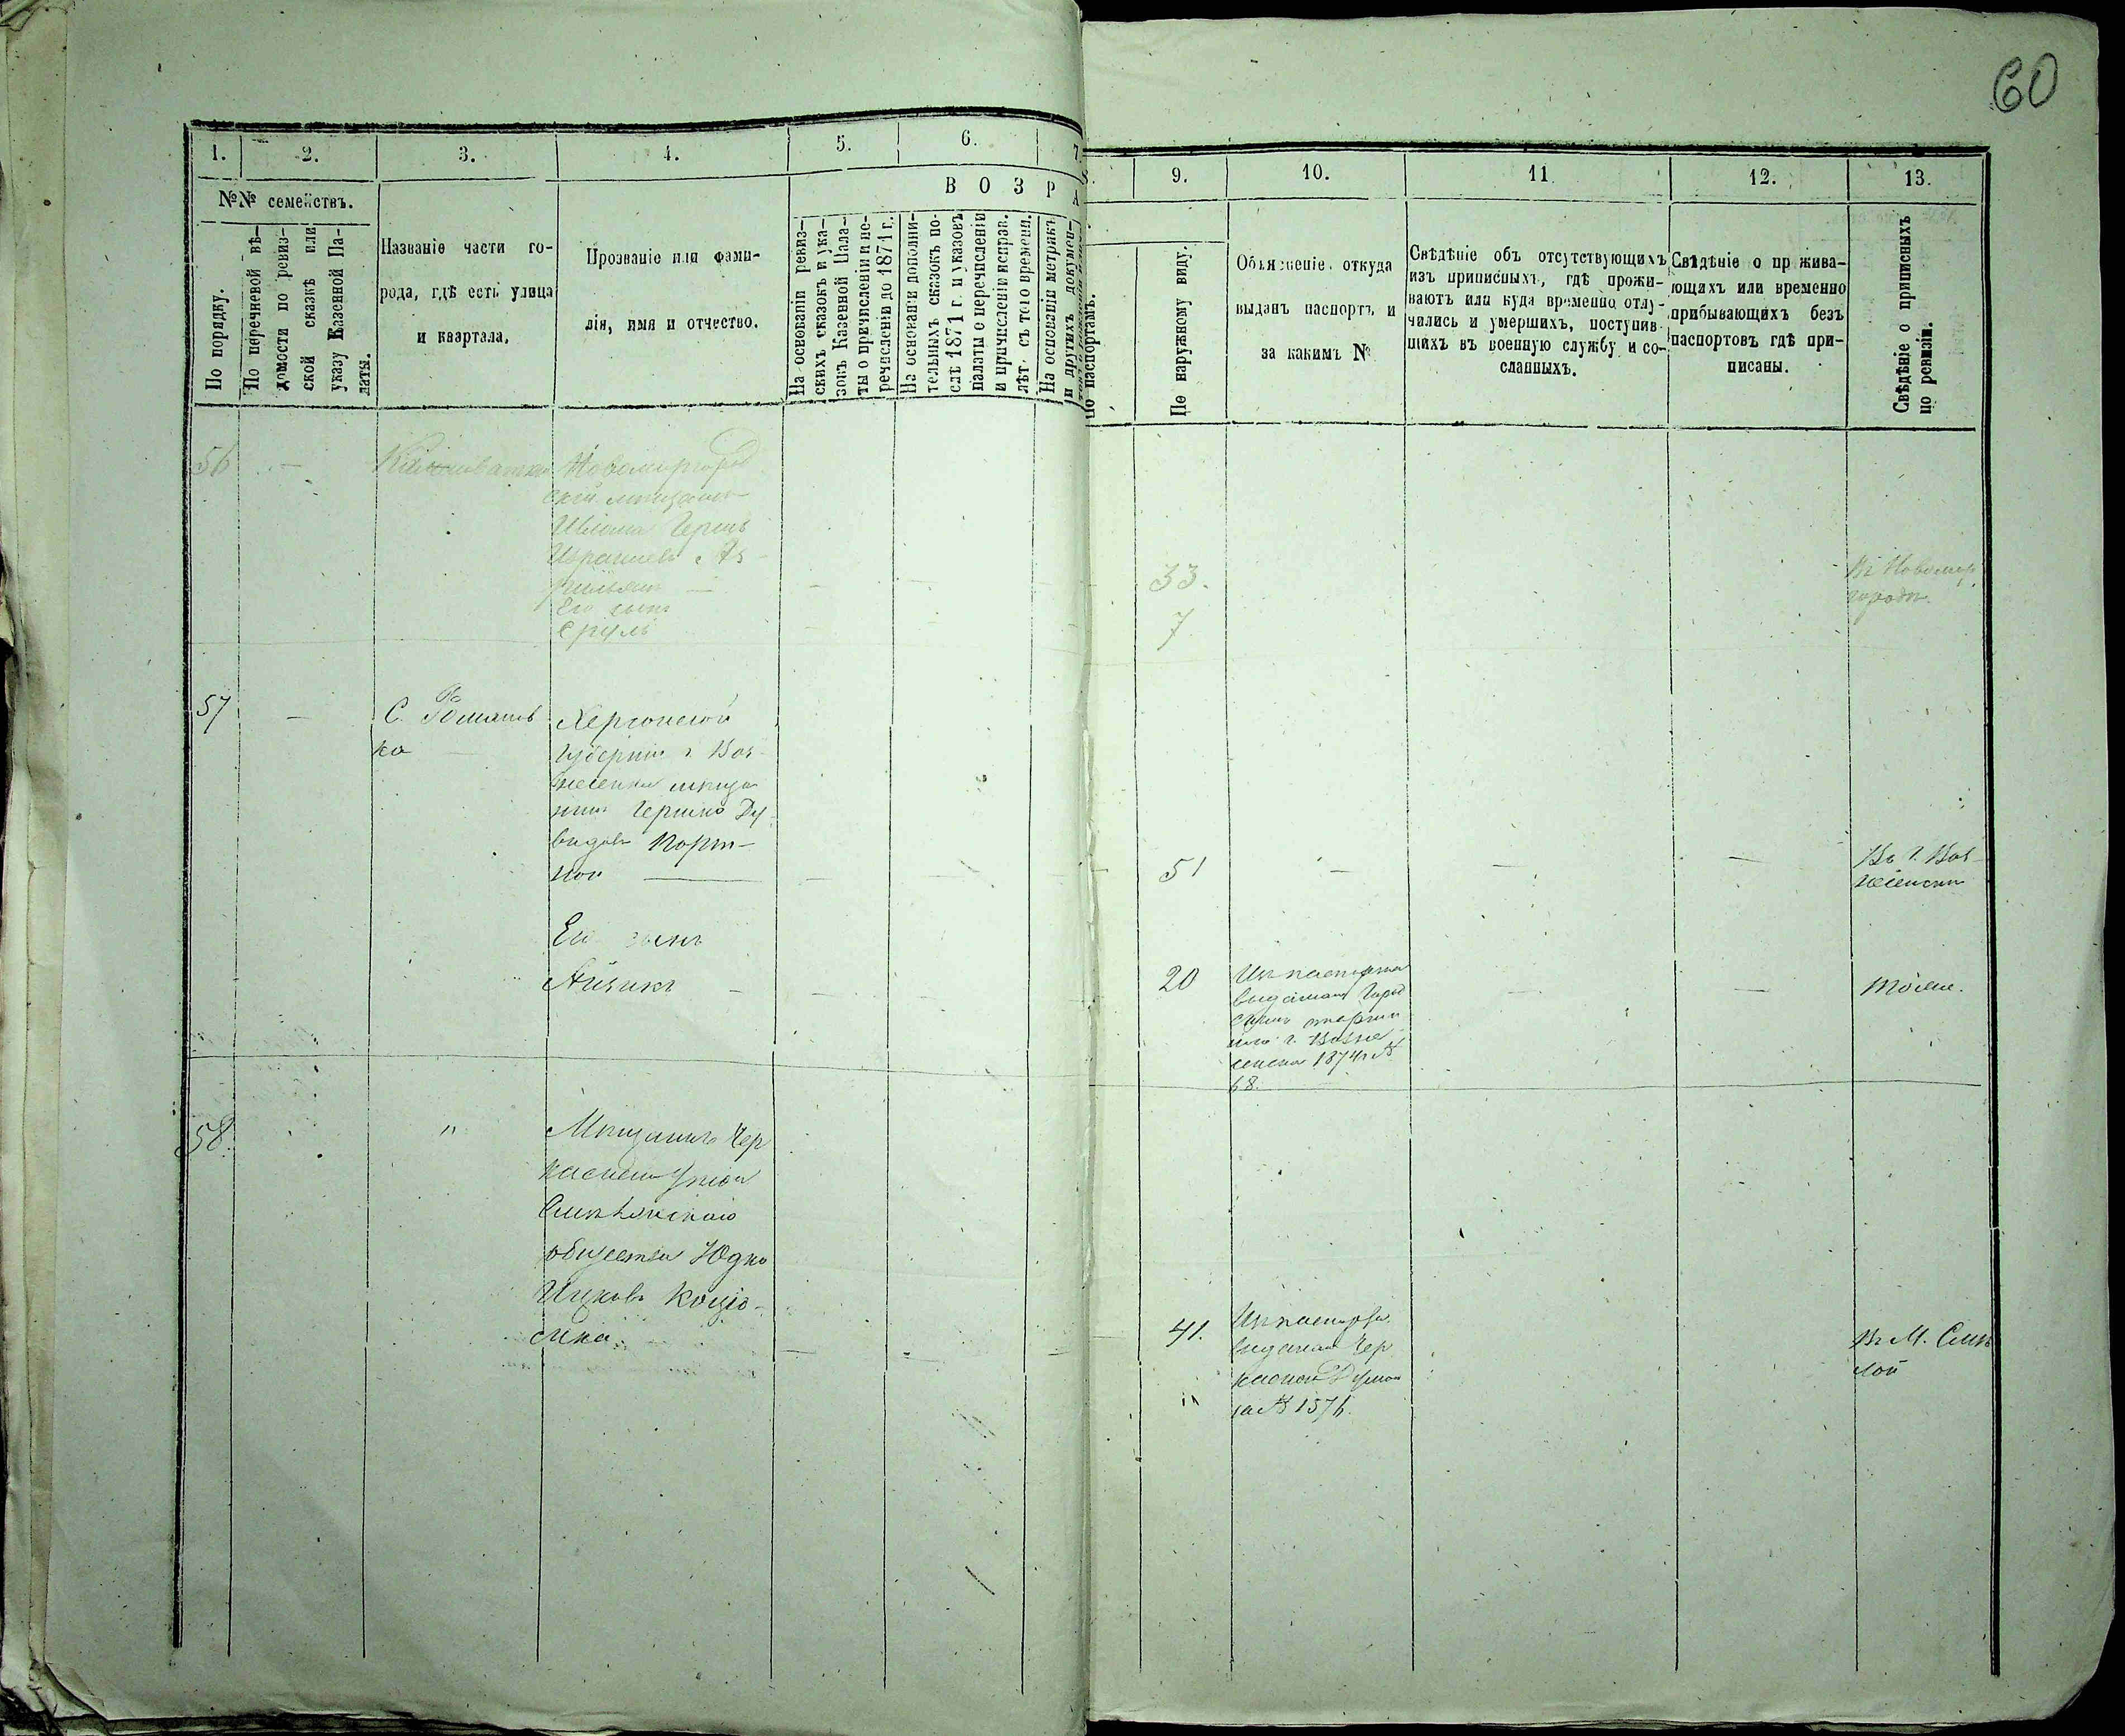 60
1. 2. 3. 4. 5. 6. 7.
8. 9. 10. 11 12. 13.
№№ семействъ.
В О З Р А
По порядку.
По перечневой вѣ-
домости по ревиз-
ской сказкѣ или
указу Казенной Па-
латы.
Названіе части го-
рода, гдѣ есть улица
и квартала.
Прозваніе или фами-
лія, имя и отчество.
На основаніи ревиз-
скихъ сказокъ и ука-
зовъ Казенной Пала-
ты о причисленіи и пе-
речисленіи до 1871 г.
На основаніи дополни-
тельныхъ сказокъ по-
слѣ 1871 г. и указовъ
палаты о перечисленіи
и причисленіи исправ.
лѣт. съ того времени.
На основаніи метрикъ
и другихъ докумен-
По паспортамъ.
По наружному виду.
Объясненіе откуда
выданъ паспортъ и
за какимъ №
Свѣдѣніе объ отсутствующихъ
изъ приписныхъ, гдѣ прожи-
ваютъ или куда временно отлу-
чились и умершихъ, поступив-
шихъ въ военную службу и со-
сланныхъ.
Свѣдѣніе о прожива-
ющихъ или временно
прибывающихъ безъ
паспортовъ гдѣ при-
писаны.
Свѣдѣніе о приписныхъ
по ревизіи.
56 — Новомиргород
скій мещанин
33. Въ Новомир
городѣ.
Его сынъ
Сруль 7
57 — С. Романов
ка —
Херсонской
Губерніи г. Воз-
несенска мѣща
нинъ Гершко Ду-
видовъ Порт-
ной — 51 — — — Въ г. Воз-
несенскѣ
Его сынъ
Айзикъ — 20 — — Тоже.
Имѣ паспортъ
выданный Город
скимъ
г. Возне
сенска 1874 г №
68.
58. " Мѣщанинъ Чер
каскаго Уѣзда
Смѣлянскаго
общества Юдко
Ицковъ
41.
Имѣ паспортъ
выданный Чер
каской Думой
за № 1576.
Въ М. Смѣ
лой